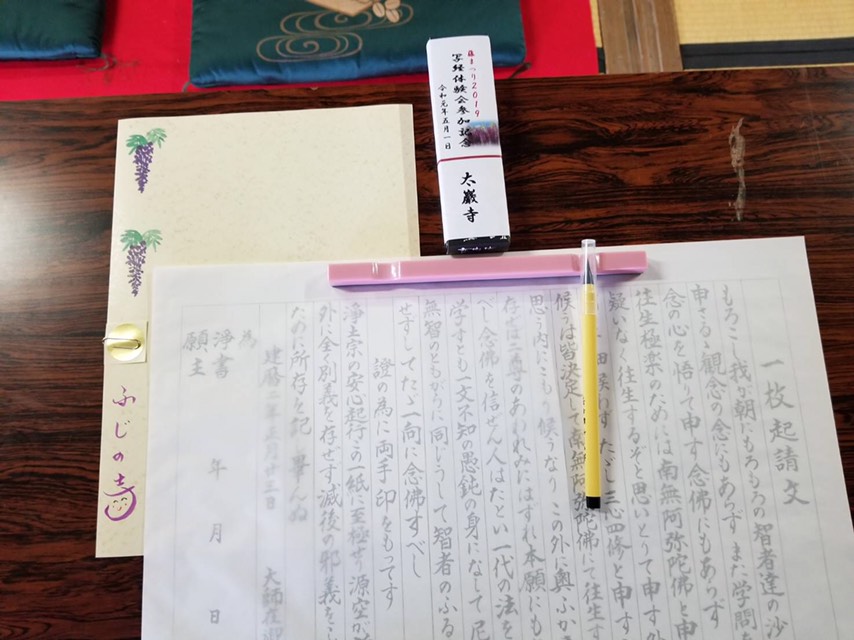 藤まつり2019
写経体験会参加記念
令和元年五月一日
大巖寺
ふじの寺
一枚起請文
もろこし我が朝にもろもろの智者達の沙
申さるゝ観念の念にもあらず また学問
念の心を悟て申す念佛にもあらず
往生極楽のためには南無阿弥陀佛と申
疑いなく往生するぞと思いとりて申す
細候わず たゞし三心四修と申す
候うは皆決定して南無阿弥陀佛にて往生す
思う内にこもり候うなり この外に奥ふか
存せば二尊のあわれみにはずれ本願にも
べし 念佛を信せん人はたとい一代の法を
学すとも一文不知の愚鈍の身になして 尼
無智のともがらに同じうして智者のふる
せずしてたゞ一向に念佛すべし
證の為に両手印をもってす
浄土宗の安心起行この一紙に至極せり 源空が
外に全く別義を存ぜず滅後の邪義をふ
ために所存を記し畢んぬ
建暦二年正月廿三日 大師在御
為
浄書
願主 年 月 日